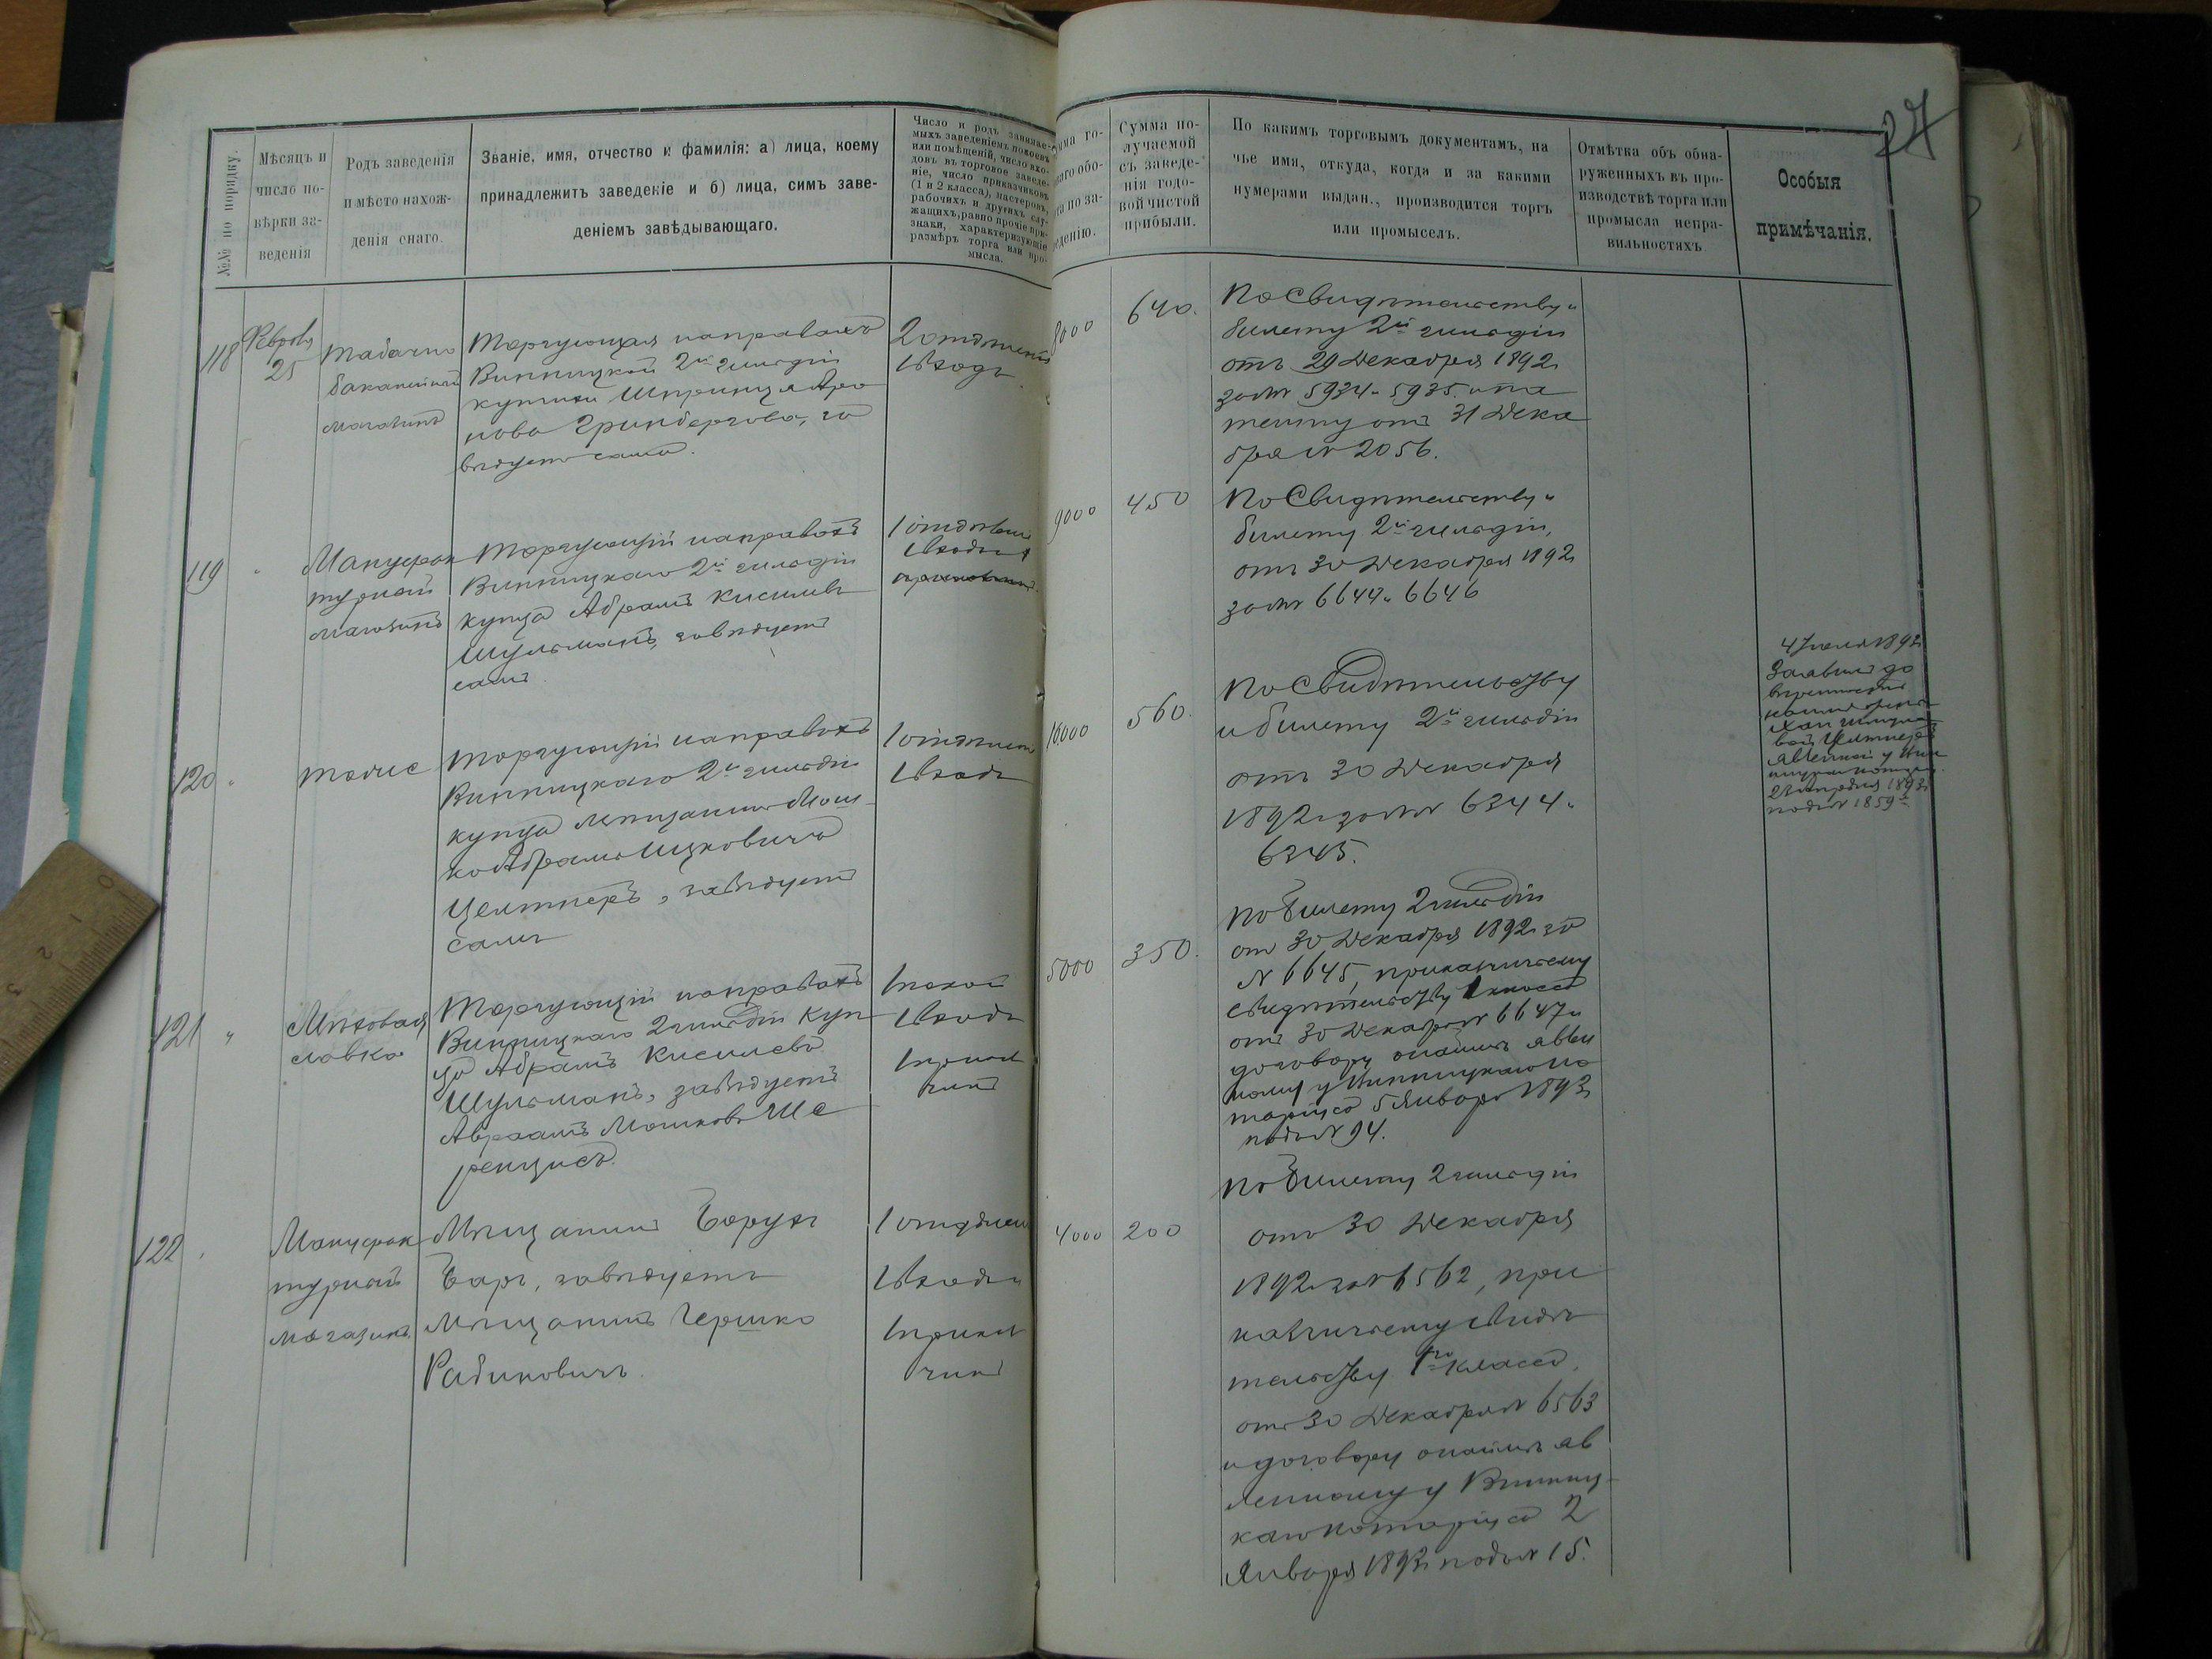 27
№№ по порядку.
Мѣсяцъ и
число по-
вѣрки за-
веденія
Родъ заведенія
и мѣсто нахож-
денія онаго.
Званіе, имя, отчество и фамилія: а) лица, коему
принадлежитъ заведеніе и б) лица, симъ заве-
деніемъ завѣдывающаго.
Число и родъ занимае-
мыхъ заведеніемъ покоевъ
или помѣщеній, число вхо-
довъ въ торговое заведе-
ніе, число приказчиковъ
(1 и 2 класса), мастеровъ,
рабочихъ и другихъ слу-
жащихъ, равно прочіе при-
знаки, характеризующіе
размѣръ торга или про-
мысла.
Сумма по-
лучаемой
съ заведе-
нія годо-
вой чистой
прибыли.
По какимъ торговымъ документамъ, на
чье имя, откуда, когда и за какими
нумерами выдан., производится торгъ
или промыселъ.
Отмѣтка объ обна-
руженныхъ въ про-
изводствѣ торга или
промысла непра-
вильностяхъ
Особыя
примѣчанія.
118
25
Табачно
бакалейный
магазинъ
Торгующая на правахъ
Винницкой 2й гильдіи
купчихи Шпринця Аро
нова Гринбергова, за
вѣдуетъ сама.
2 отдѣленія
1 входъ
8000
640.
По Свидѣтельству и
билету 2й гильдіи
отъ 29 Декабря 1892
за № 5934 и 5935 и па
тенту отъ 31 Дека
бря № 2056.
119
Мануфак
турный
магазинъ
Торгующій на правахъ
Винницкаго 2й гильдіи
купца Абрамъ Кисилевъ
Шульманъ, завѣдуетъ
самъ.
1 отдѣленіе
1 входъ
9000
450
По Свидѣтельству и
билету 2й гильдіи,
отъ 30 Декабря 1892
за № 6644 и 6646
120
тоже
Торгующій на правахъ
Винницкаго 2й гильдіи
купца мѣщанинъ Мош-
ко Абрамъ Ицковичъ
Целтнеръ, завѣдуетъ
самъ
1 отдѣленіе
1 входъ
16000
560.
По Свидѣтельству
и билету 2й гильдіи
отъ 30 Декабря
1892 за №№ 6344 и
6345.
4 Іюня 1892
Заявилъ до
вѣренность
23 Апрѣля 1893
подъ № 1859
121
Мѣховая
лавка
Торгующій на правахъ
Винницкаго 2 гильдіи куп
ца Абрамъ Кисилевъ
Шульманъ, завѣдуетъ
Авраамъ Мошковъ Ше
ренцисъ.
1 покой
1 входъ
1 приказ
чикъ
5000
350.
По билету 2 гильдіи
отъ 30 Декабря 1892 за
№ 6645, приказчичьему
свидѣтельству 1 класса
отъ 30 Декабря № 6647 и
договору о наймѣ явлен
ному у Винницкаго но
таріуса 5 Января 1893
подъ № 94.
122
Мануфак
турный
магазинъ
Мѣщанинъ Борухъ
Баръ, завѣдуетъ
мѣщанинъ Гершко
Рабиновичъ.
1 отдѣлен
1 входъ
1 приказ
чикъ
4000
200
По билету 2 гильдіи
отъ 30 Декабря
1892 за № 6562, при
казчичьему свидѣ
тельству 1го класса,
отъ 30 Декабря № 6563
и договору о наймѣ яв
ленному у Винниц-
каго нотаріуса 2
Января 1893 подъ № 15.